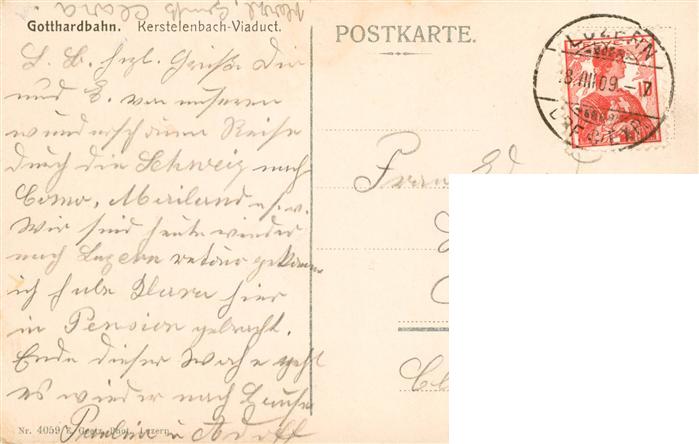 Herzl. Gruß Clara.
Gotthardbahn. Kerstelenbach-Viaduct.
POSTKARTE.
LUZERN
18.III.09.-
L. B. hzl. Grüße Dir
und E. von unseren
wunderschönen Reise
durch die Schweiz nach
Como, Mailand u.s.w.
Wir sind heute wieder
nach Luzern retour gekomm
ich habe Klara hier
in Pension gebracht.
Ende dieser Woche geht
es wieder nach Hause
Pauline u Adolf
Nr. 4059 E. Goetz, Phot., Luzern.
Frau